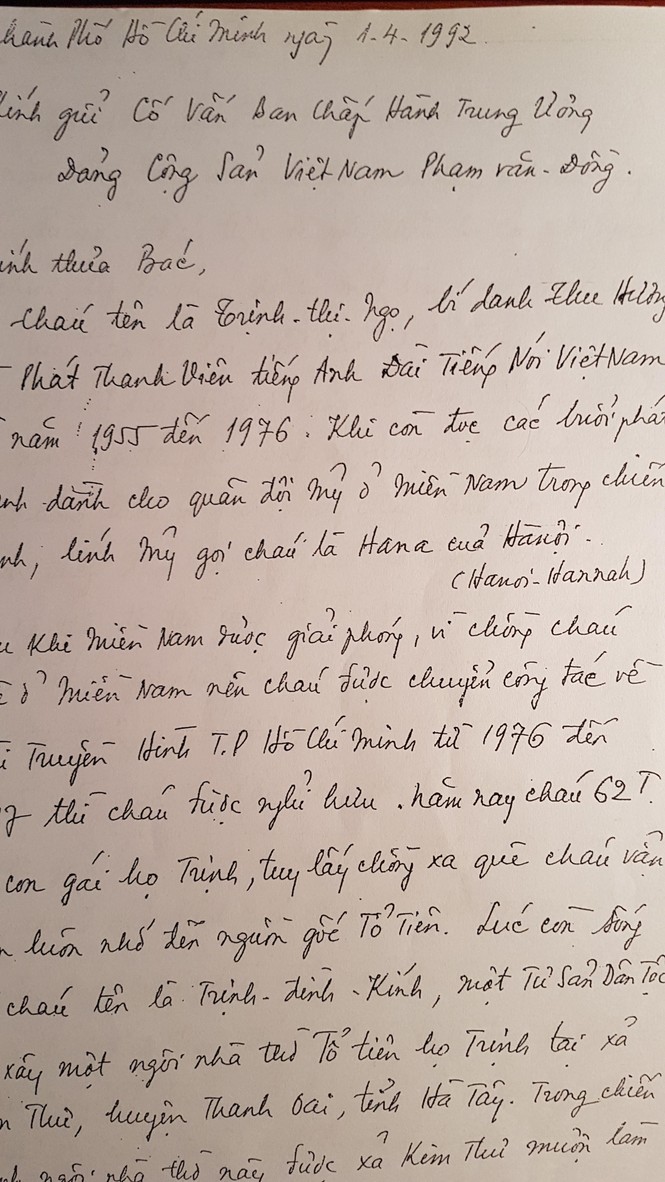 hành Phố Hồ Chí Minh ngày 1-4-1992.
ính gửi Cố Vấn Ban Chấp Hành Trung Ương
Đảng Cộng Sản Việt Nam Phạm văn-Đồng.
ính thưa Bác,
Cháu tên là Trịnh-thị-Ngọ, bí danh Thu Hương
Phát Thanh Viên tiếng Anh Đài Tiếng Nói Việt Nam
năm 1955 đến 1976. Khi còn đọc các buổi phát
nh dành cho quân đội Mỹ ở Miền Nam trong chiến
nh, lính Mỹ gọi cháu là Hana của Hànội-
(Hanoi-Hannah)
u Khi Miền Nam được giải phóng, vì chồng cháu
ê ở Miền Nam nên cháu được chuyển công tác về
i Truyền Hình T.P Hồ Chí Minh từ 1976 đến
7 thì cháu được nghỉ hưu. năm nay cháu 62 T.
con gái họ Trịnh, tuy lấy chồng xa quê cháu vẫn
n luôn nhớ đến nguồn gốc Tổ Tiên. Lúc còn sống
cháu tên là Trịnh-đình-Kính, một Tư Sản Dân Tộc
xây một ngôi nhà thờ Tổ tiên họ Trịnh tại xã
m Thư, huyện Thanh Oai, tỉnh Hà Tây. Trong chiến
nh ngôi nhà thờ này được xã Kim Thư muốn làm